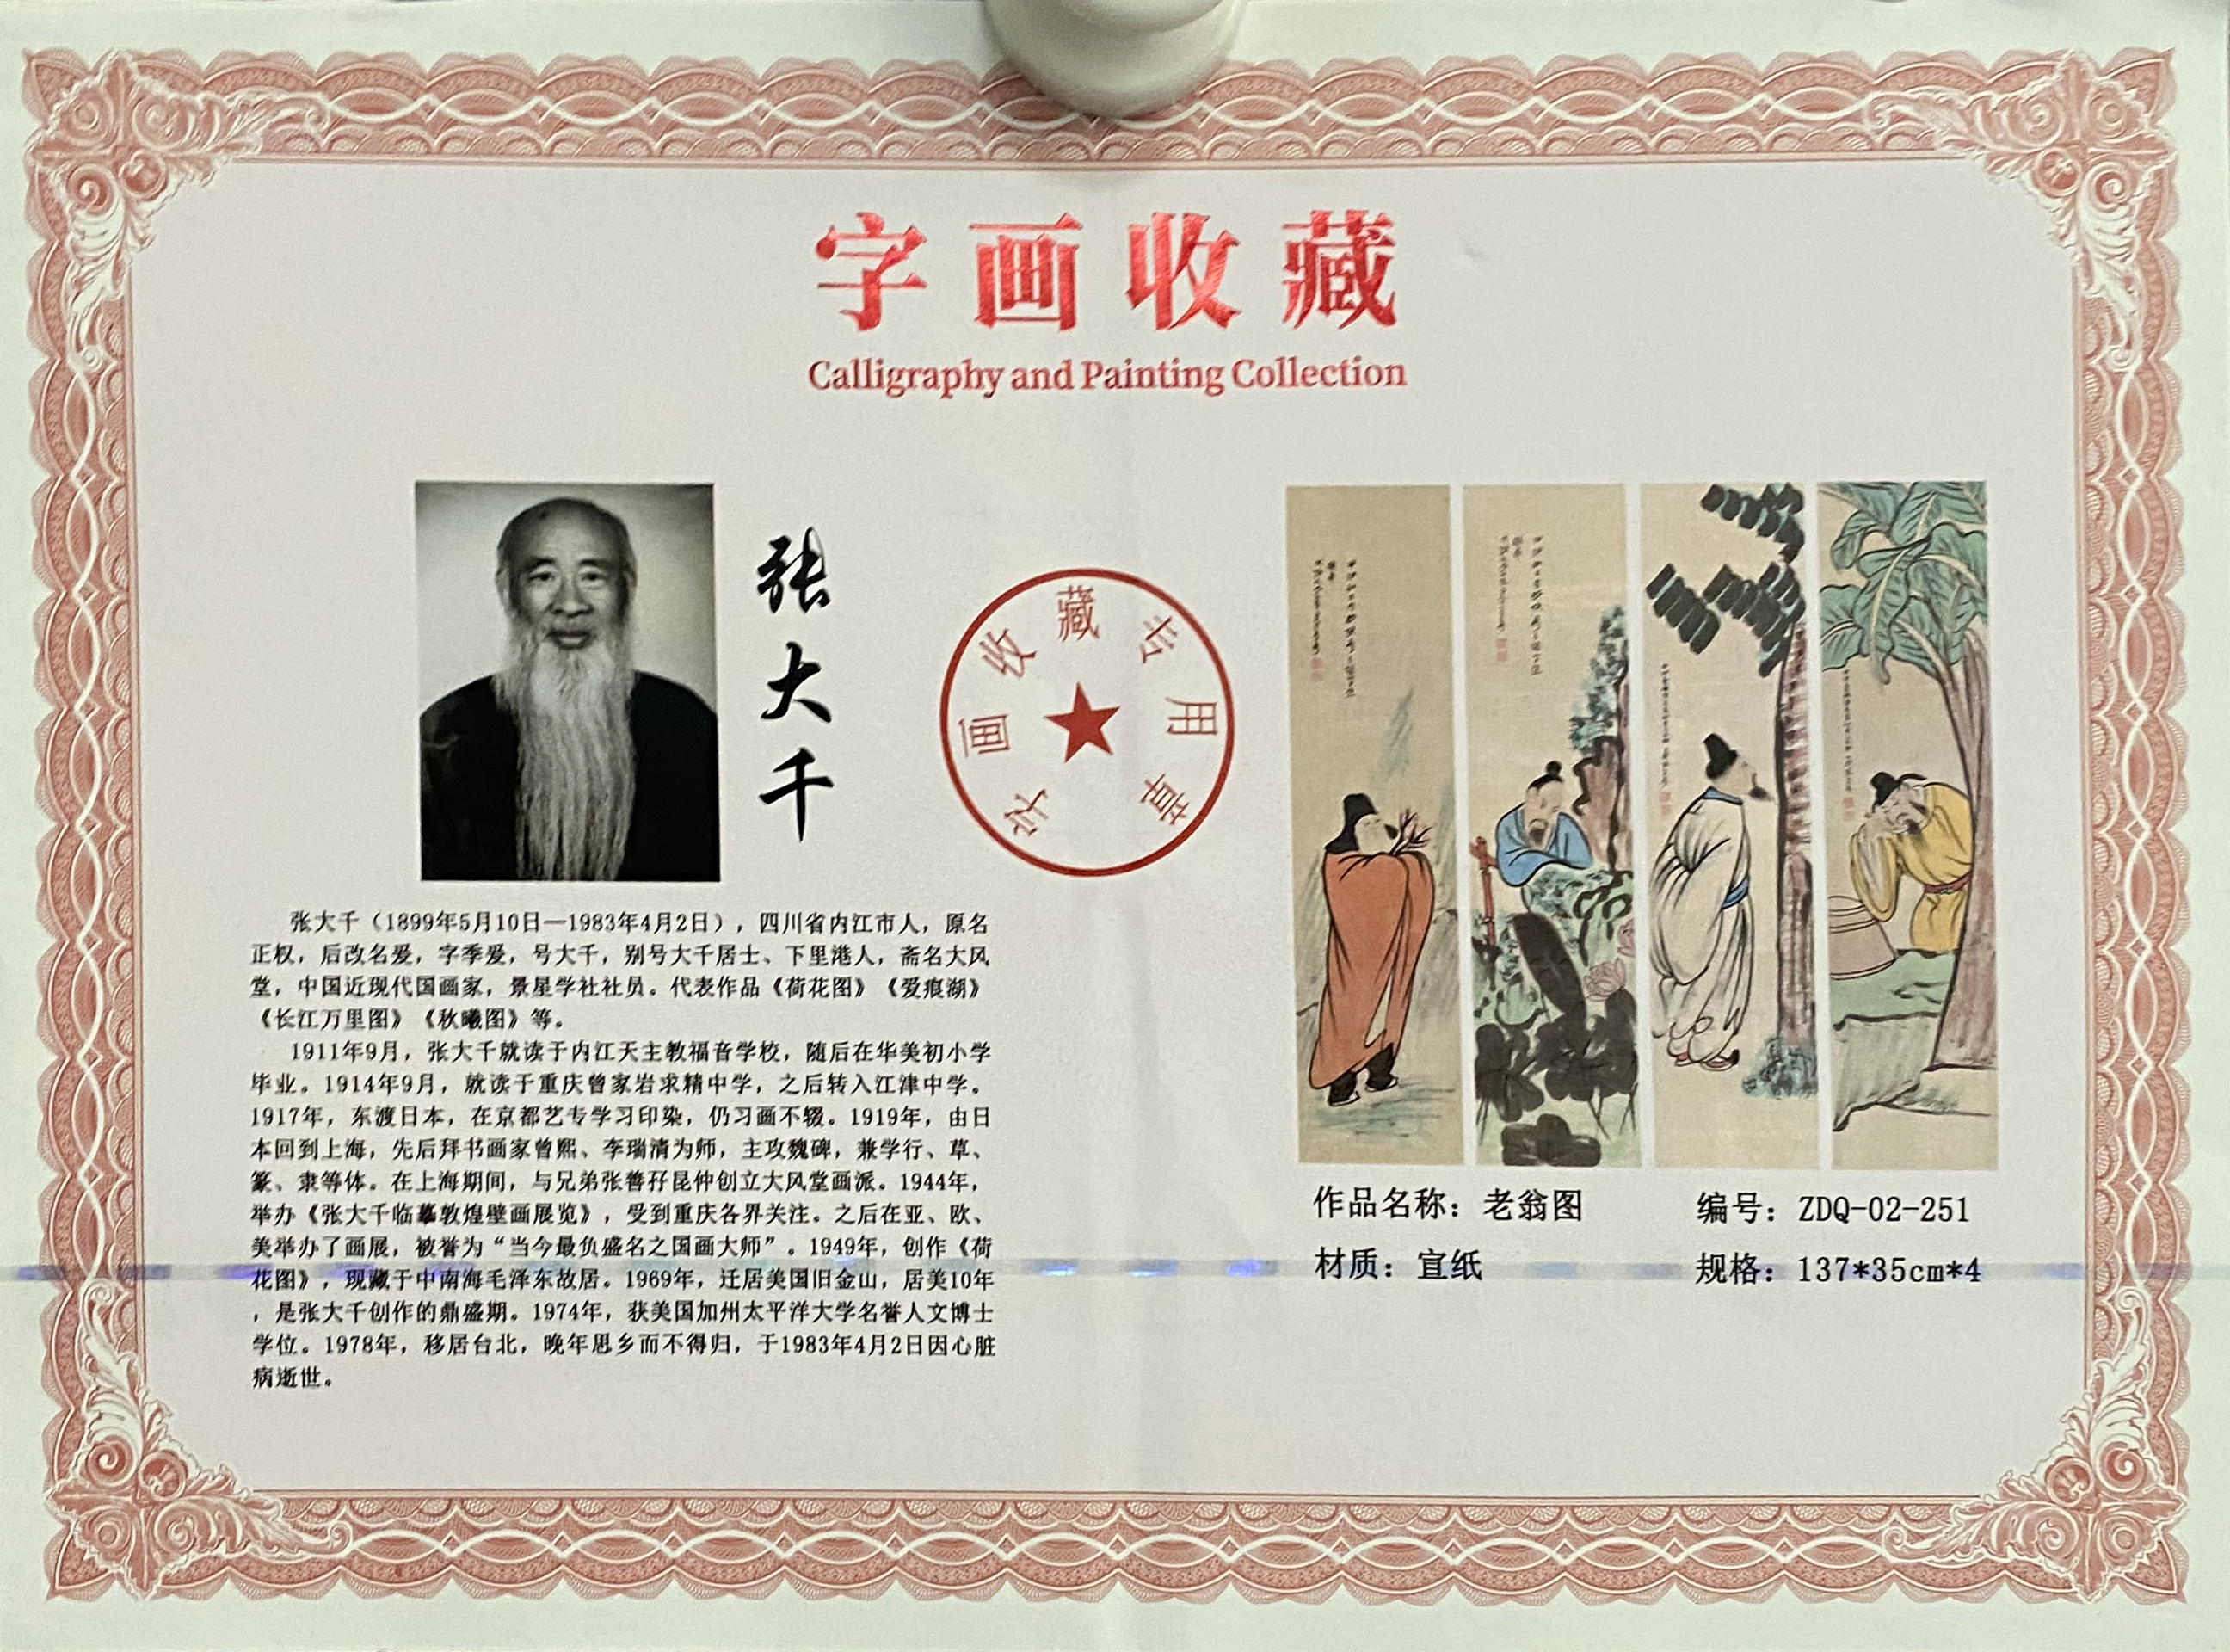 字画收藏
Calligraphy and Painting Collection
张大千
字画收藏专用章
张大千（1899年5月10日—1983年4月2日），四川省内江市人，原名
正权，后改名爰，字季爰，号大千，别号大千居士、下里港人，斋名大风
堂，中国近现代国画家，景星学社社员。代表作品《荷花图》《爱痕湖》
《长江万里图》《秋曦图》等。
1911年9月，张大千就读于内江天主教福音学校，随后在华美初小学
毕业。1914年9月，就读于重庆曾家岩求精中学，之后转入江津中学。
1917年，东渡日本，在京都艺专学习印染，仍习画不辍。1919年，由日
本回到上海，先后拜书画家曾熙、李瑞清为师，主攻魏碑，兼学行、草、
篆、隶等体。在上海期间，与兄弟张善孖昆仲创立大风堂画派。1944年，
举办《张大千临摹敦煌壁画展览》，受到重庆各界关注。之后在亚、欧、
美举办了画展，被誉为“当今最负盛名之国画大师”。1949年，创作《荷
花图》，现藏于中南海毛泽东故居。1969年，迁居美国旧金山，居美10年
，是张大千创作的鼎盛期。1974年，获美国加州太平洋大学名誉人文博士
学位。1978年，移居台北，晚年思乡而不得归，于1983年4月2日因心脏
病逝世。
作品名称：老翁图
编号：ZDQ-02-251
材质：宣纸
规格：137*35cm*4